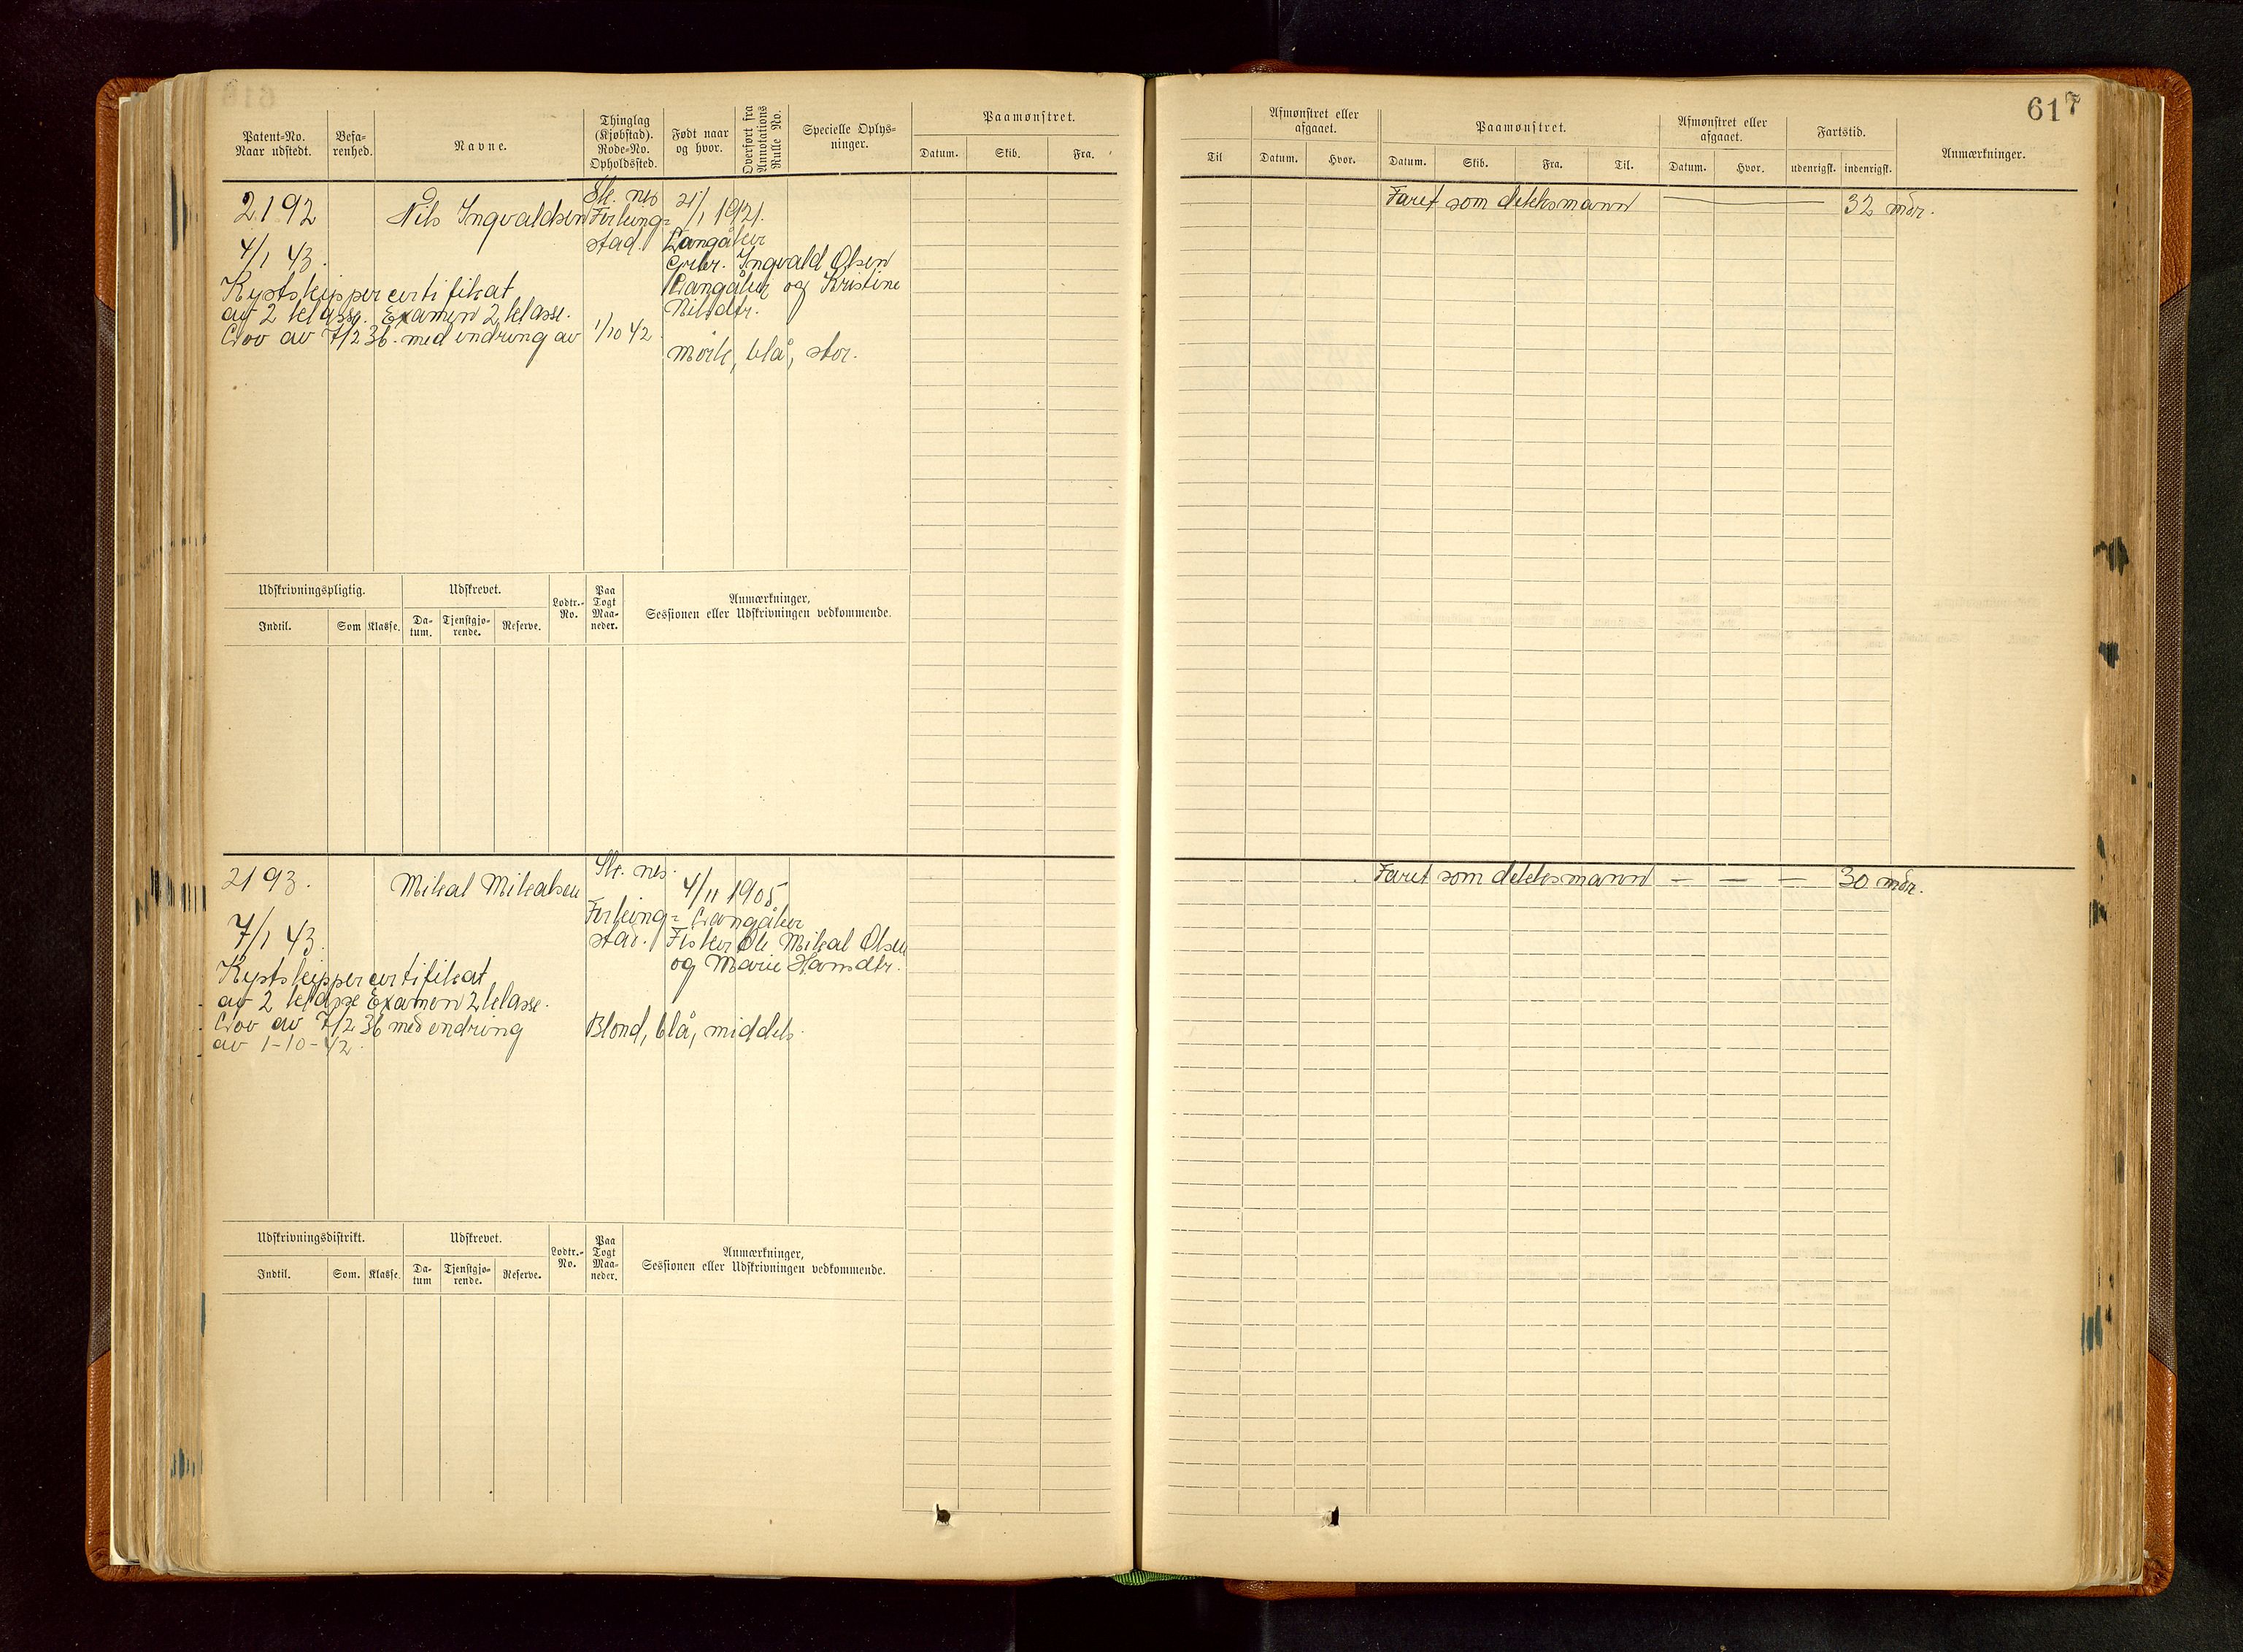 617
Patent-No. Naar udstedt.
Befarenhed.
Navne.
Thinglag (Kjøbstad). Rode-No. Opholdssted.
Født naar og hvor.
Overført fra Annotations Rulle No.
Specielle Oplysninger.
Paamønstret.
Datum. Skib. Fra.
Til
Afmønstret eller afgaaet.
Datum. Hvor.
Paamønstret.
Datum. Skib. Fra. Til.
Afmønstret eller afgaaet.
Datum. Hvor.
Fartstid.
udenrigsk. indenrigsk.
Anmærkninger.
2192
4/1 43.
Nils Ingvaldsen
nes
Ferking=
stad.
21/1 1921.
Langåker
Ingvald Olsen
Langåker og Kristine
Nilsdtr.
Kystskippercertifikat
av 2 klasse. Examen 2 klasse.
Lov av 7/2 36. med endring av 1/10 42.
Mørk, blå, stor.
Faret som dekksmann
32 mdr.
Udskrivningspligtig.
Indtil. Som Klasse.
Udskrevet.
Datum. Tjenstgjørende. Reserve.
Lodtr.-No.
Paa Togt Maaneder.
Anmærkninger,
Sessionen eller Udskrivningen vedkommende.
2193.
7/1 43.
Mikal Mikalsen
nes.
Ferking=
stad.
4/11 1905
Langåker
Fisker Ole Mikal Olsen
og Marie Hansdtr.
Kystskippercertifikat
av 2 klasse Examen 2 klasse.
Lov av 7/2 36 med endring
av 1-10-42.
Blond, blå, middels.
Faret som dekksmann — — —
30 mdr.
Udskrivningsdistrikt.
Indtil. Som. Klasse.
Udskrevet.
Datum Tjenstgjørende. Reserve.
Lodtr.-No.
Paa Togt Maaneder.
Anmærkninger,
Sessionen eller Udskrivningen vedkommende.